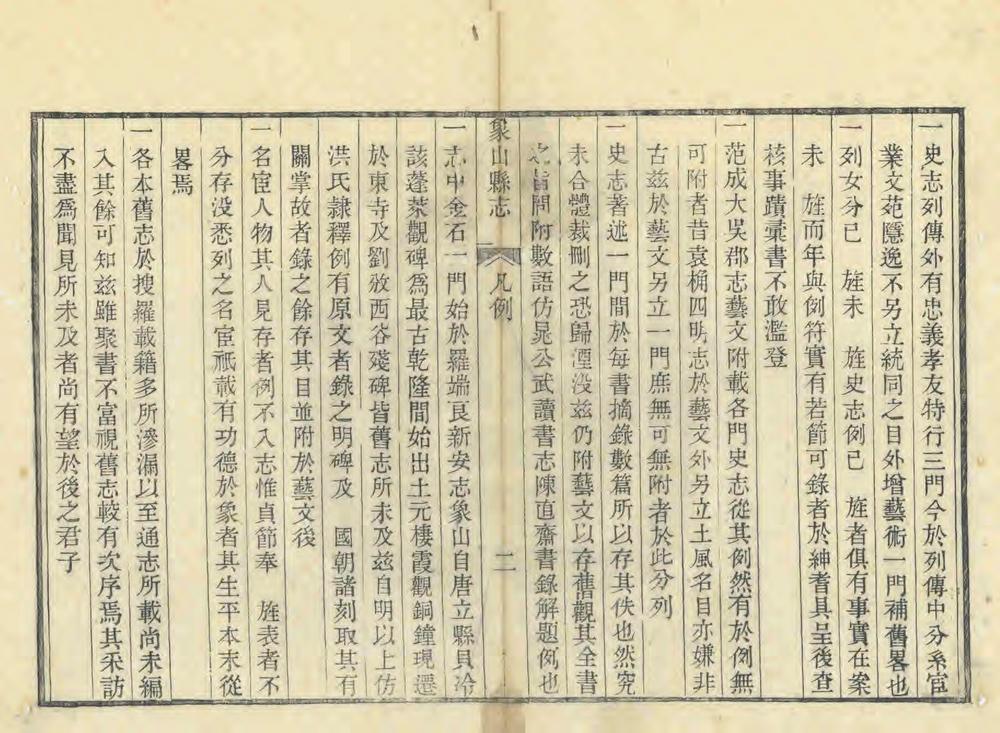 一史志列傳外有忠義孝友特行三門今於列傳中分系宦
業文苑隱逸不另立統同之目外增藝術一門補舊畧也
一列女分已　旌未　旌史志例已　旌者俱有事實在案
未　旌而年與例符實有若節可錄者於紳耆具呈後查
核事蹟彙書不敢濫登
一范成大吳郡志藝文附載各門史志從其例然有於例無
可附者昔袁桷四明志於藝文外另立土風名目亦嫌非
古兹於藝文另立一門庶無可無附者於此分列
一史志著述一門間於每書摘錄數篇所以存其佚也然究
未合體裁刪之恐歸湮没兹仍附藝文以存舊觀其全書
之旨間附數語仿晁公武讀書志陳直齋書錄解題例也
象山縣志　凡例　二
一志中金石一門始於羅端良新安志象山自唐立縣貝冷
該蓬萊觀碑爲最古乾隆間始出土元棲霞觀銅鐘現遷
於東寺及劉攽西谷殘碑皆舊志所未及兹自明以上仿
洪氏隷釋例有原文者錄之明碑及　國朝諸刻取其有
關掌故者錄之餘存其目並附於藝文後
一名宦人物其人見存者例不入志惟貞節奉　旌表者不
分存没悉列之名宦祇載有功德於象者其生平本末從
畧焉
一各本舊志於搜羅載籍多所滲漏以至通志所載尚未編
入其餘可知兹雖聚書不富視舊志較有次序焉其采訪
不盡爲聞見所未及者尚有望於後之君子